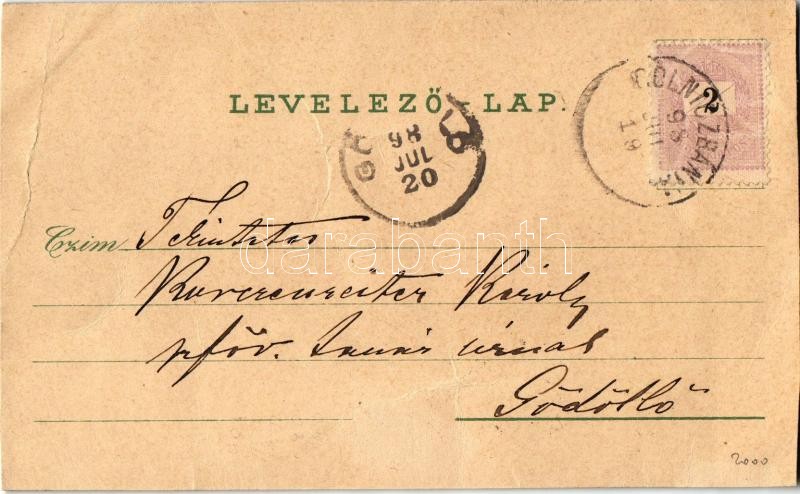 LEVELEZŐ-LAP.
2
98
JUL
19
98
JUL
20
Czim Tekintetes
Károly
főv. tanár úrnak
Gödöllő
darabanth
2000